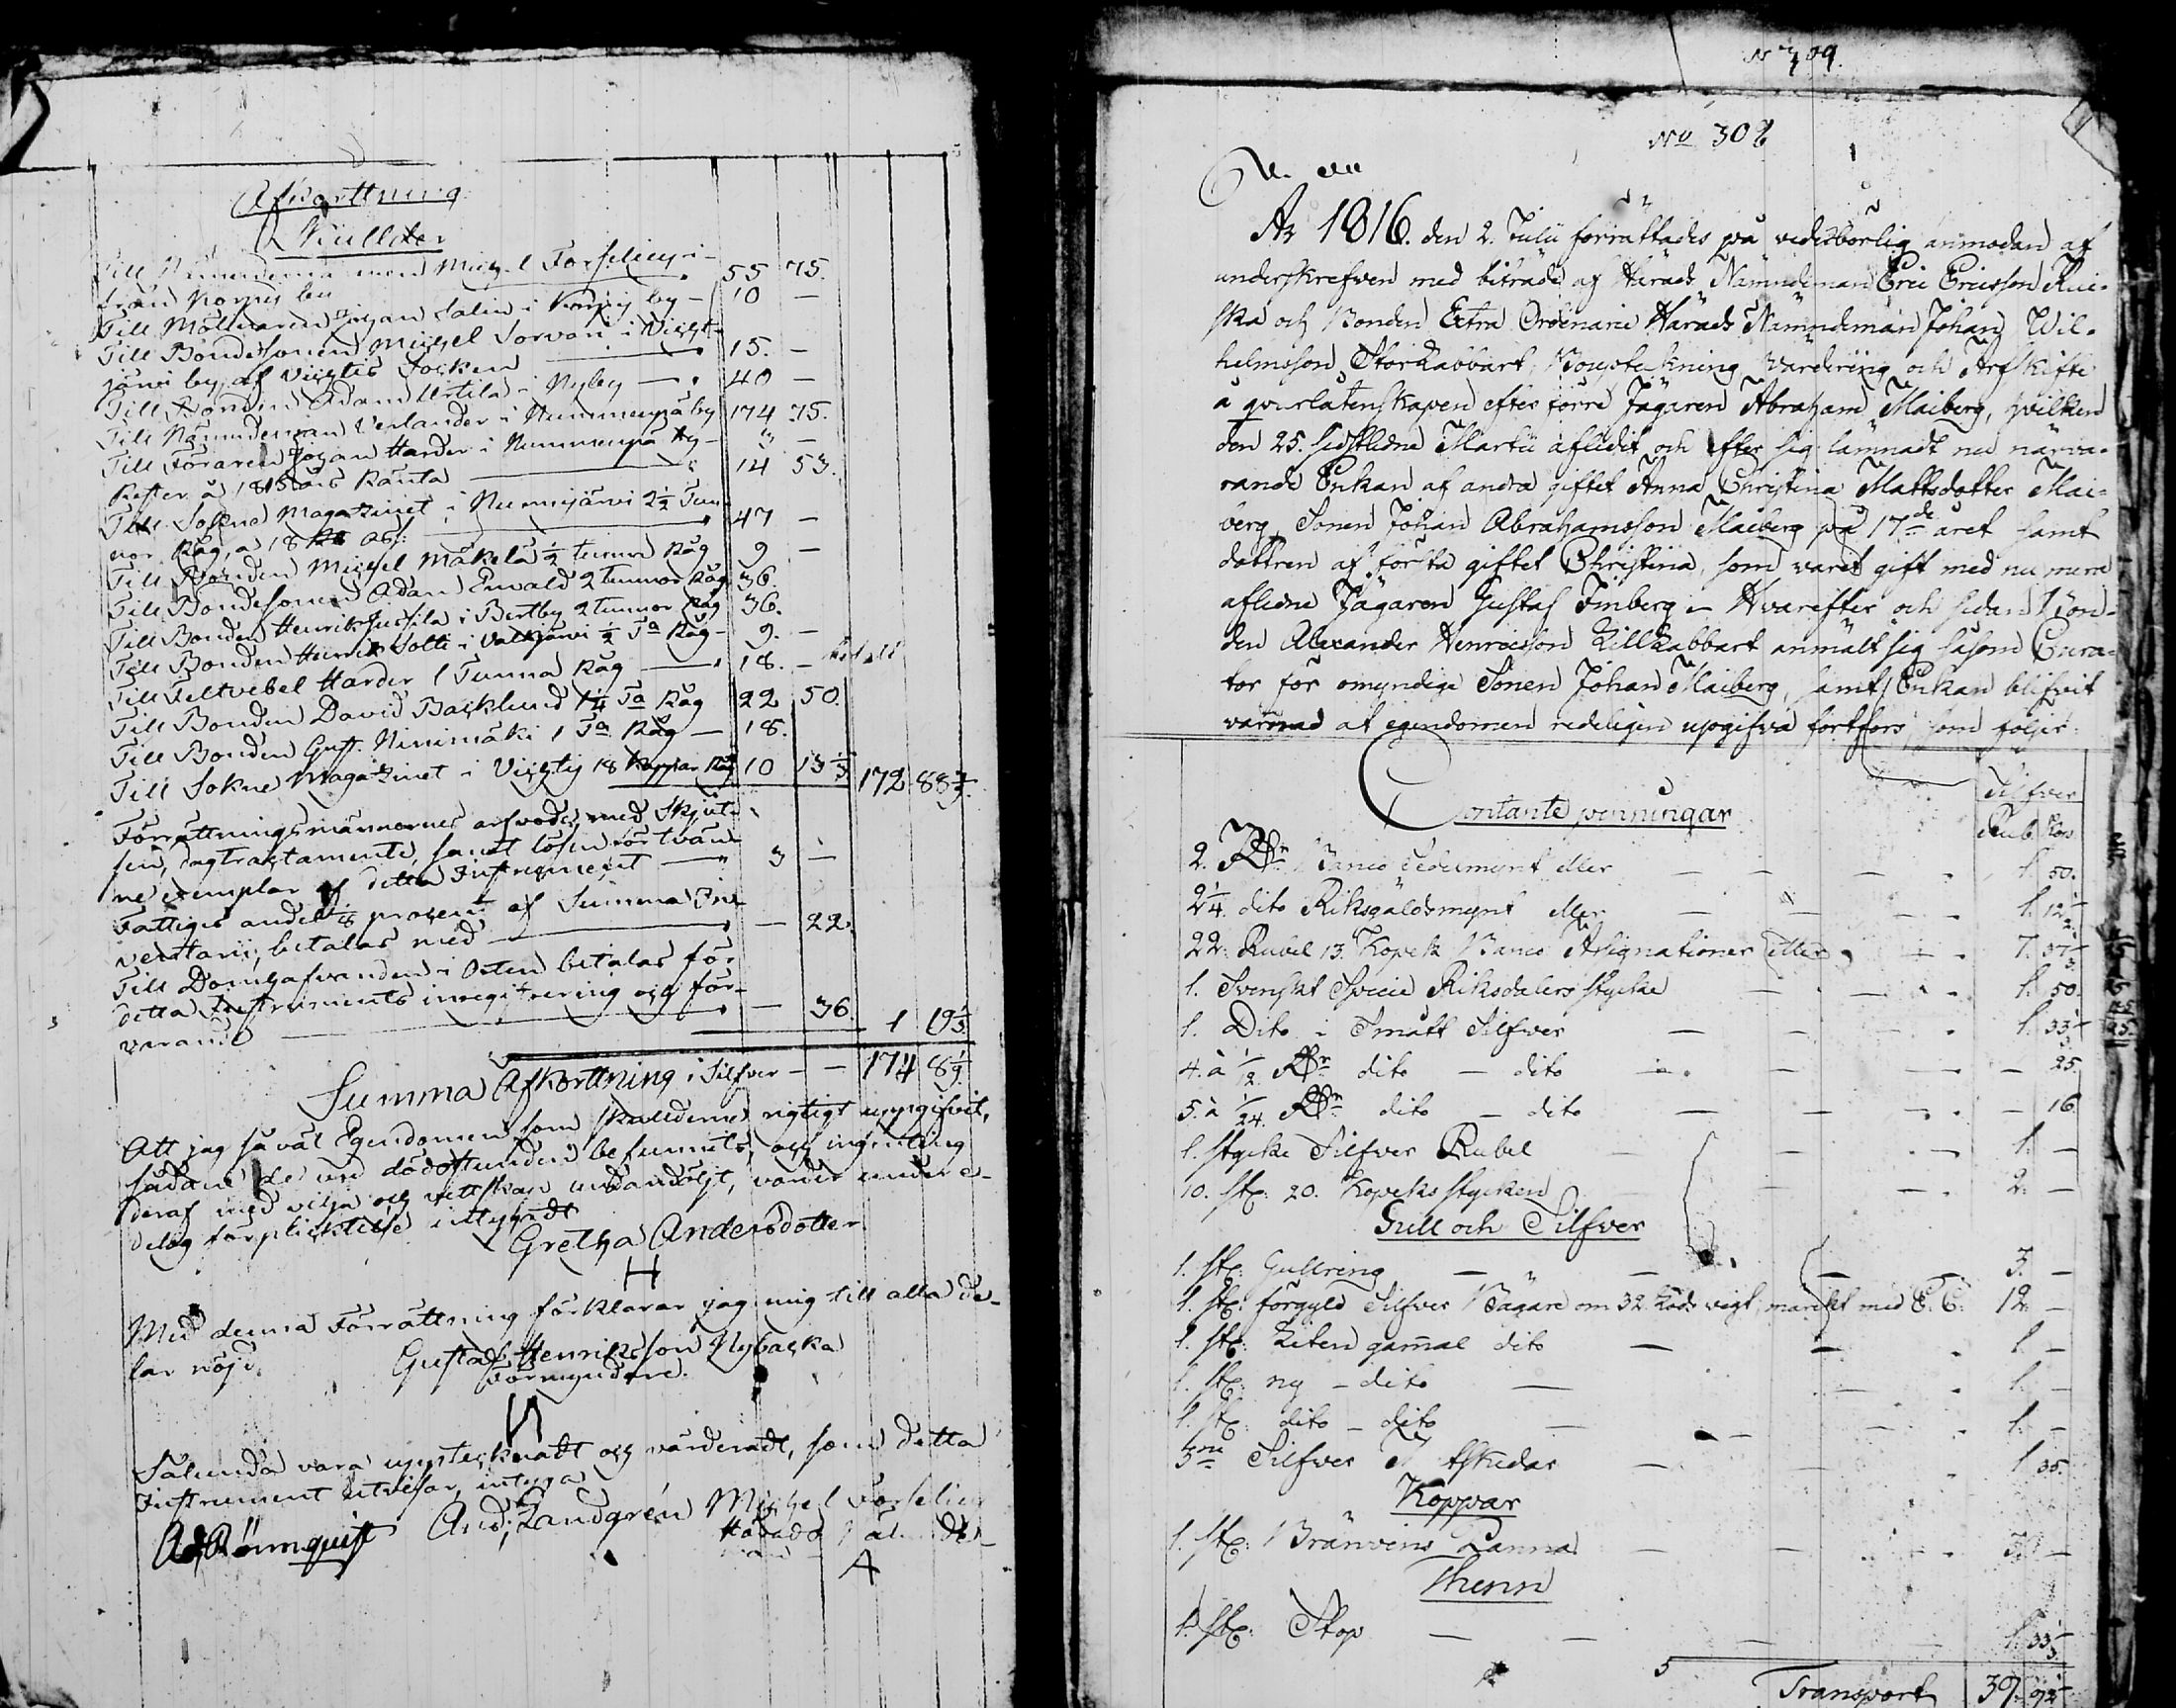 Afkorttning
Skullder
Till Nämndeman Michel Forselius i
från Korpis by 55 75.
Till Mölnaren Johan Salin i Korpis by — 10 —
Till Bondesonen Michel Sorvari i Vicht-
järvi by, af Vichtis Socken 15. —
Till Bonden Adam Urtila i Nyby — 40 —
Till Nämndeman Verlander i Nummenpä by 174 75.
Till Föraren Johan Harder i Nummenpä by — " —
Rester å 1815 års Ränta 14 53.
Till Sokne Magazinet i Nurmijärvi 2½ Tun-
nor Råg, a 18 47 —
Till Bonden Michel Mäkelä ½ tunna Råg 9 —
Till Bondesonen Adam Ewald 2 tunnor Råg 36.
Till Bonden Henrik Jussila i Bertby 2 tunnor Råg 36.
Till Bonden Henrik Solti i Valkjärvi ½ Ta Råg — 9. —
Till Feltvebel Harder 1 Tunna Råg — 18. —
Till Bonden David Backlund 1¼ Ta Råg 22 50.
Till Bonden Gust. Ninimäki 1 Ta Råg — 18.
Till Sokne Magazinet i Vichtis 18 Kappar Råg 10 13⅓ 172 88
Förrättningsmännernes arfvode, med Skjut-
sen, dagtraktamente, samt lösen för tvän-
ne exemplar af detta Instrument — 3 —
Fattiges andel ¼ procent af Summa In-
ventarii, betalas med — 22.
Till Domhafvanden i Orten betalas för
detta Instruments inregistrering och för-
varande — 36. 1 19⅓
Summa Afkorttning i Silfver — — 174 8
Att jag så väl Egendomen som Skulderne rigtigt uppgifvit,
sådane de vid dödsstunden befunnits, och ingenting
deraf med vilja och vettskap undandöljt, varder under e-
delig förpliktelse intygadt
Gretha Andersdotter
Med denna Förrättning förklarar jag mig till alla de-
lar nöjd.
Gustaf Henriksson Nybacka
Förmyndare.
Sålunda vara upptecknadt och värderadt, som detta
Instrument utvisar, intyga
Ad. Rönnquist And; Landgrén Michel Forselius
Härads
A
No 309.
No 308
År 1816. den 2. Julii förrättades på vederbörlig anmodan af
underskrefven med biträde af Härads Nämndeman Eric Ericsson Rui-
ska och Bonden Extra Ordinarie Härads Nämndeman Johan Wil-
helmsson Storkabbart, Bouptekning värdering och Arfskifte
å qvarlåtenskapen efter förre Jägaren Abraham Maiberg, hvilken
den 25. sidstledne Martii aflidit och efter sig lämnadt nu närva-
rande Enkan af andra giftet Anna Christina Mattsdotter Mai-
berg, Sonen Johan Abrahamsson Maiberg på 17de året samt
dottren af första giftet Christina, som varit gift med nu mera
aflidne Jägaren Gustaf Finberg — Hvarefter och sedan Bon-
den Alexander Henricsson Lillkabbart anmält sig såsom Cura-
tor för omyndige Sonen Johan Maiberg, samt Enkan blifvit
varnad at egendomen redeligen upgifva fortfors, som följer:
Silfver
Contante penningar Rub. Kop
2. Rdr Banco Sedelmynt eller — — — 1. 50.
2¼. dito Riksgäldsmynt eller — — — 1. 12½
22. Rubel 13. Kopek Banco Assignationer eller — 7. 37
1. Svenskt Specie Riksdalers stycke — — 1. 50.
1. Dito i Smått Silfver — — 1. 33⅓
4. à 1/12. Rdr dito — dito — — — 25.
5. à 1/24. Rdr dito — dito — — — 16
1. stycke Silfver Rubel — — 1. —
10. st: 20. Kopeks stycken — — 2. —
Gull och Silfver
1. st: Gullring — — — 3. —
1. st: förgyld Silfver Bägare om 32. Lods vigt, märckt med C. C. 12. —
1. st: Liten gam̄al dito — — 1. —
1. st: ny — dito — — 1. —
1. st: dito — dito — — 1. —
3ne Silfver Matskedar — — 1 35.
Koppar
1. st: Bränvins Panna — — 3. —
Thenn
1. st: Stop — — — 1. 33⅓
Transport 39. 92